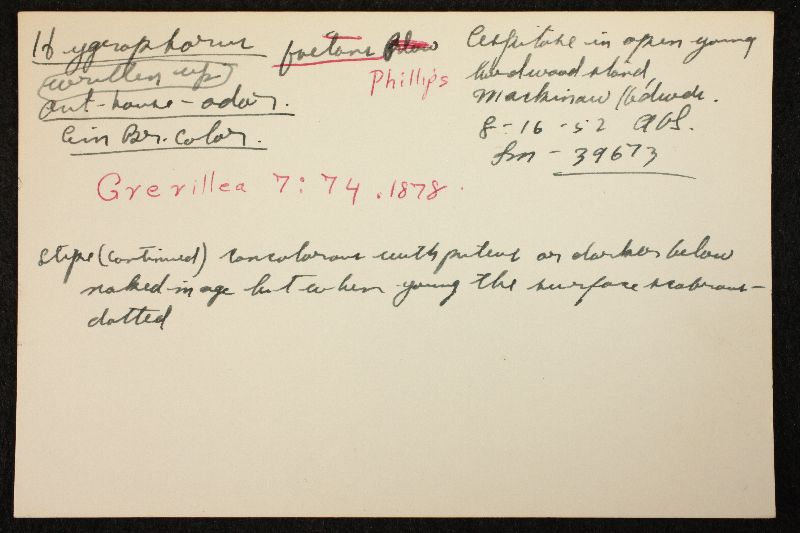 Hygrophorus foetens
Phillips
(written up)
out-house-odor.
Cin Br. color.
Cespitose in open young
hardwood stand,
Mackinaw
8-16-52 AHS.
Sm-39673
Grevillea 7:74, 1878.
Stipe (continued) concolorous with pileus or darker below
naked in age but when young the surface scabrous-
dotted